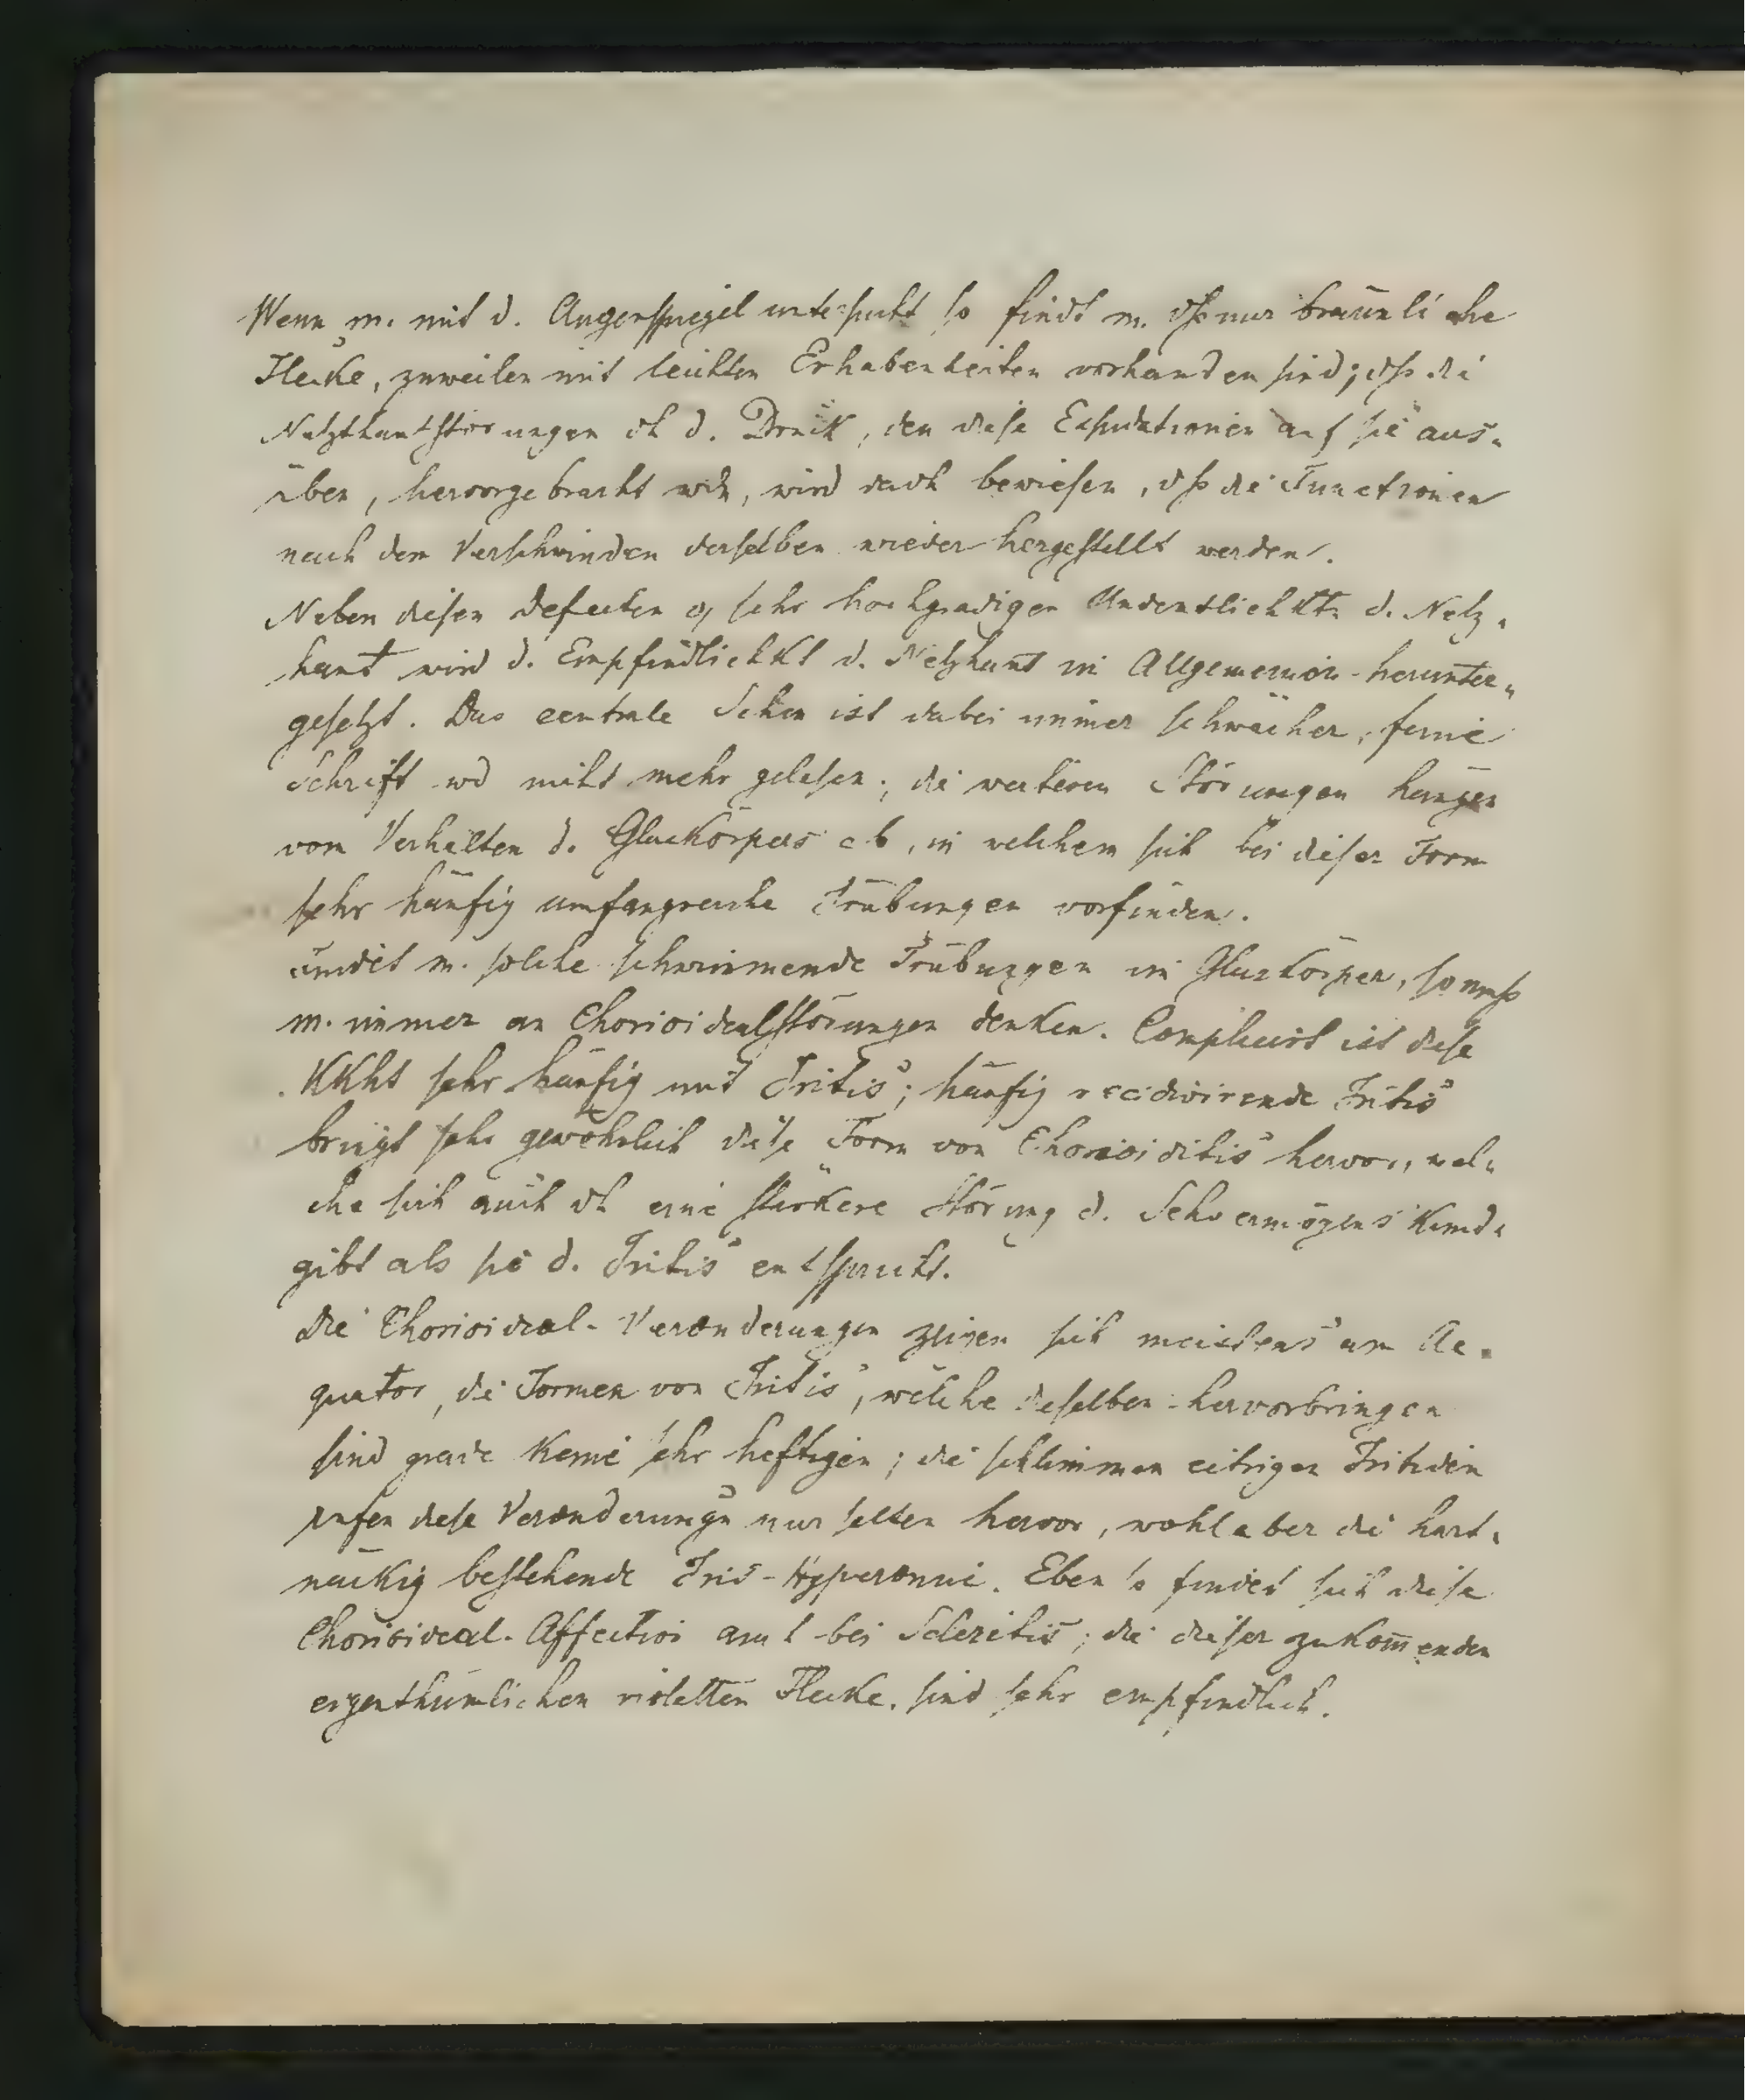 Wenn m. mit d. Augenspiegel untersucht so findt m. dß nur bräunliche
Flecke, zuweilen mit leichten Erhabenheiten vorhanden sind; dß die
Netzhautstörungen dh d. Druck, den diese Exsudationen auf sie aus-
üben, hervorgebracht wdn, wird dadh bewiesen, dß die Functionen
nach dem Verschwinden derselben wieder hergestellt werden.
Neben diesen Defecten sehr hochgradigen Undeutlichktn d. Netz-
haut wird d. Empfindlichkt d. Netzhaut im Allgemeinen herunter-
gesetzt. Das centrale Sehen ist dabei immer schwächer, feine
Schrift wd nicht mehr gelesen; die weiteren Störungen hängen
vom Verhalten d. Glaskörpers ab, in welchem sich bei dieser Form
sehr häufig umfangreiche Trübungen vorfinden.
Findet m. solche schwimmende Trübungen im Glaskörper, so muß
m. immer an Chorioidealstörungen denken. Complicirt ist diese
KKht sehr häufig mit Iritis; häufig recidivirende Iritis
bringt sehr gewöhnlich diese Form von Chorioiditis hervor, wel-
che sich auch dh eine stärkere Störung d. Sehvermögens kund-
gibt als sie d. Iritis entspricht.
Die Chorioideal-Veränderungen zeigen sich meistens am Ae-
quator, die Formen von Iritis, welche dieselben hervorbringen
sind grade keine sehr heftigen; die schlimmen eitrigen Iritiden
rufen diese Veränderungn nur selten hervor, wohl aber die hart-
näckig bestehende Iris-Hyperämie. Eben so findet sich diese
Chorioideal-Affection auch bei Scleritis; die dieser zukom̅enden
eigenthümlichen violetten Flecke, sind sehr empfindlich.